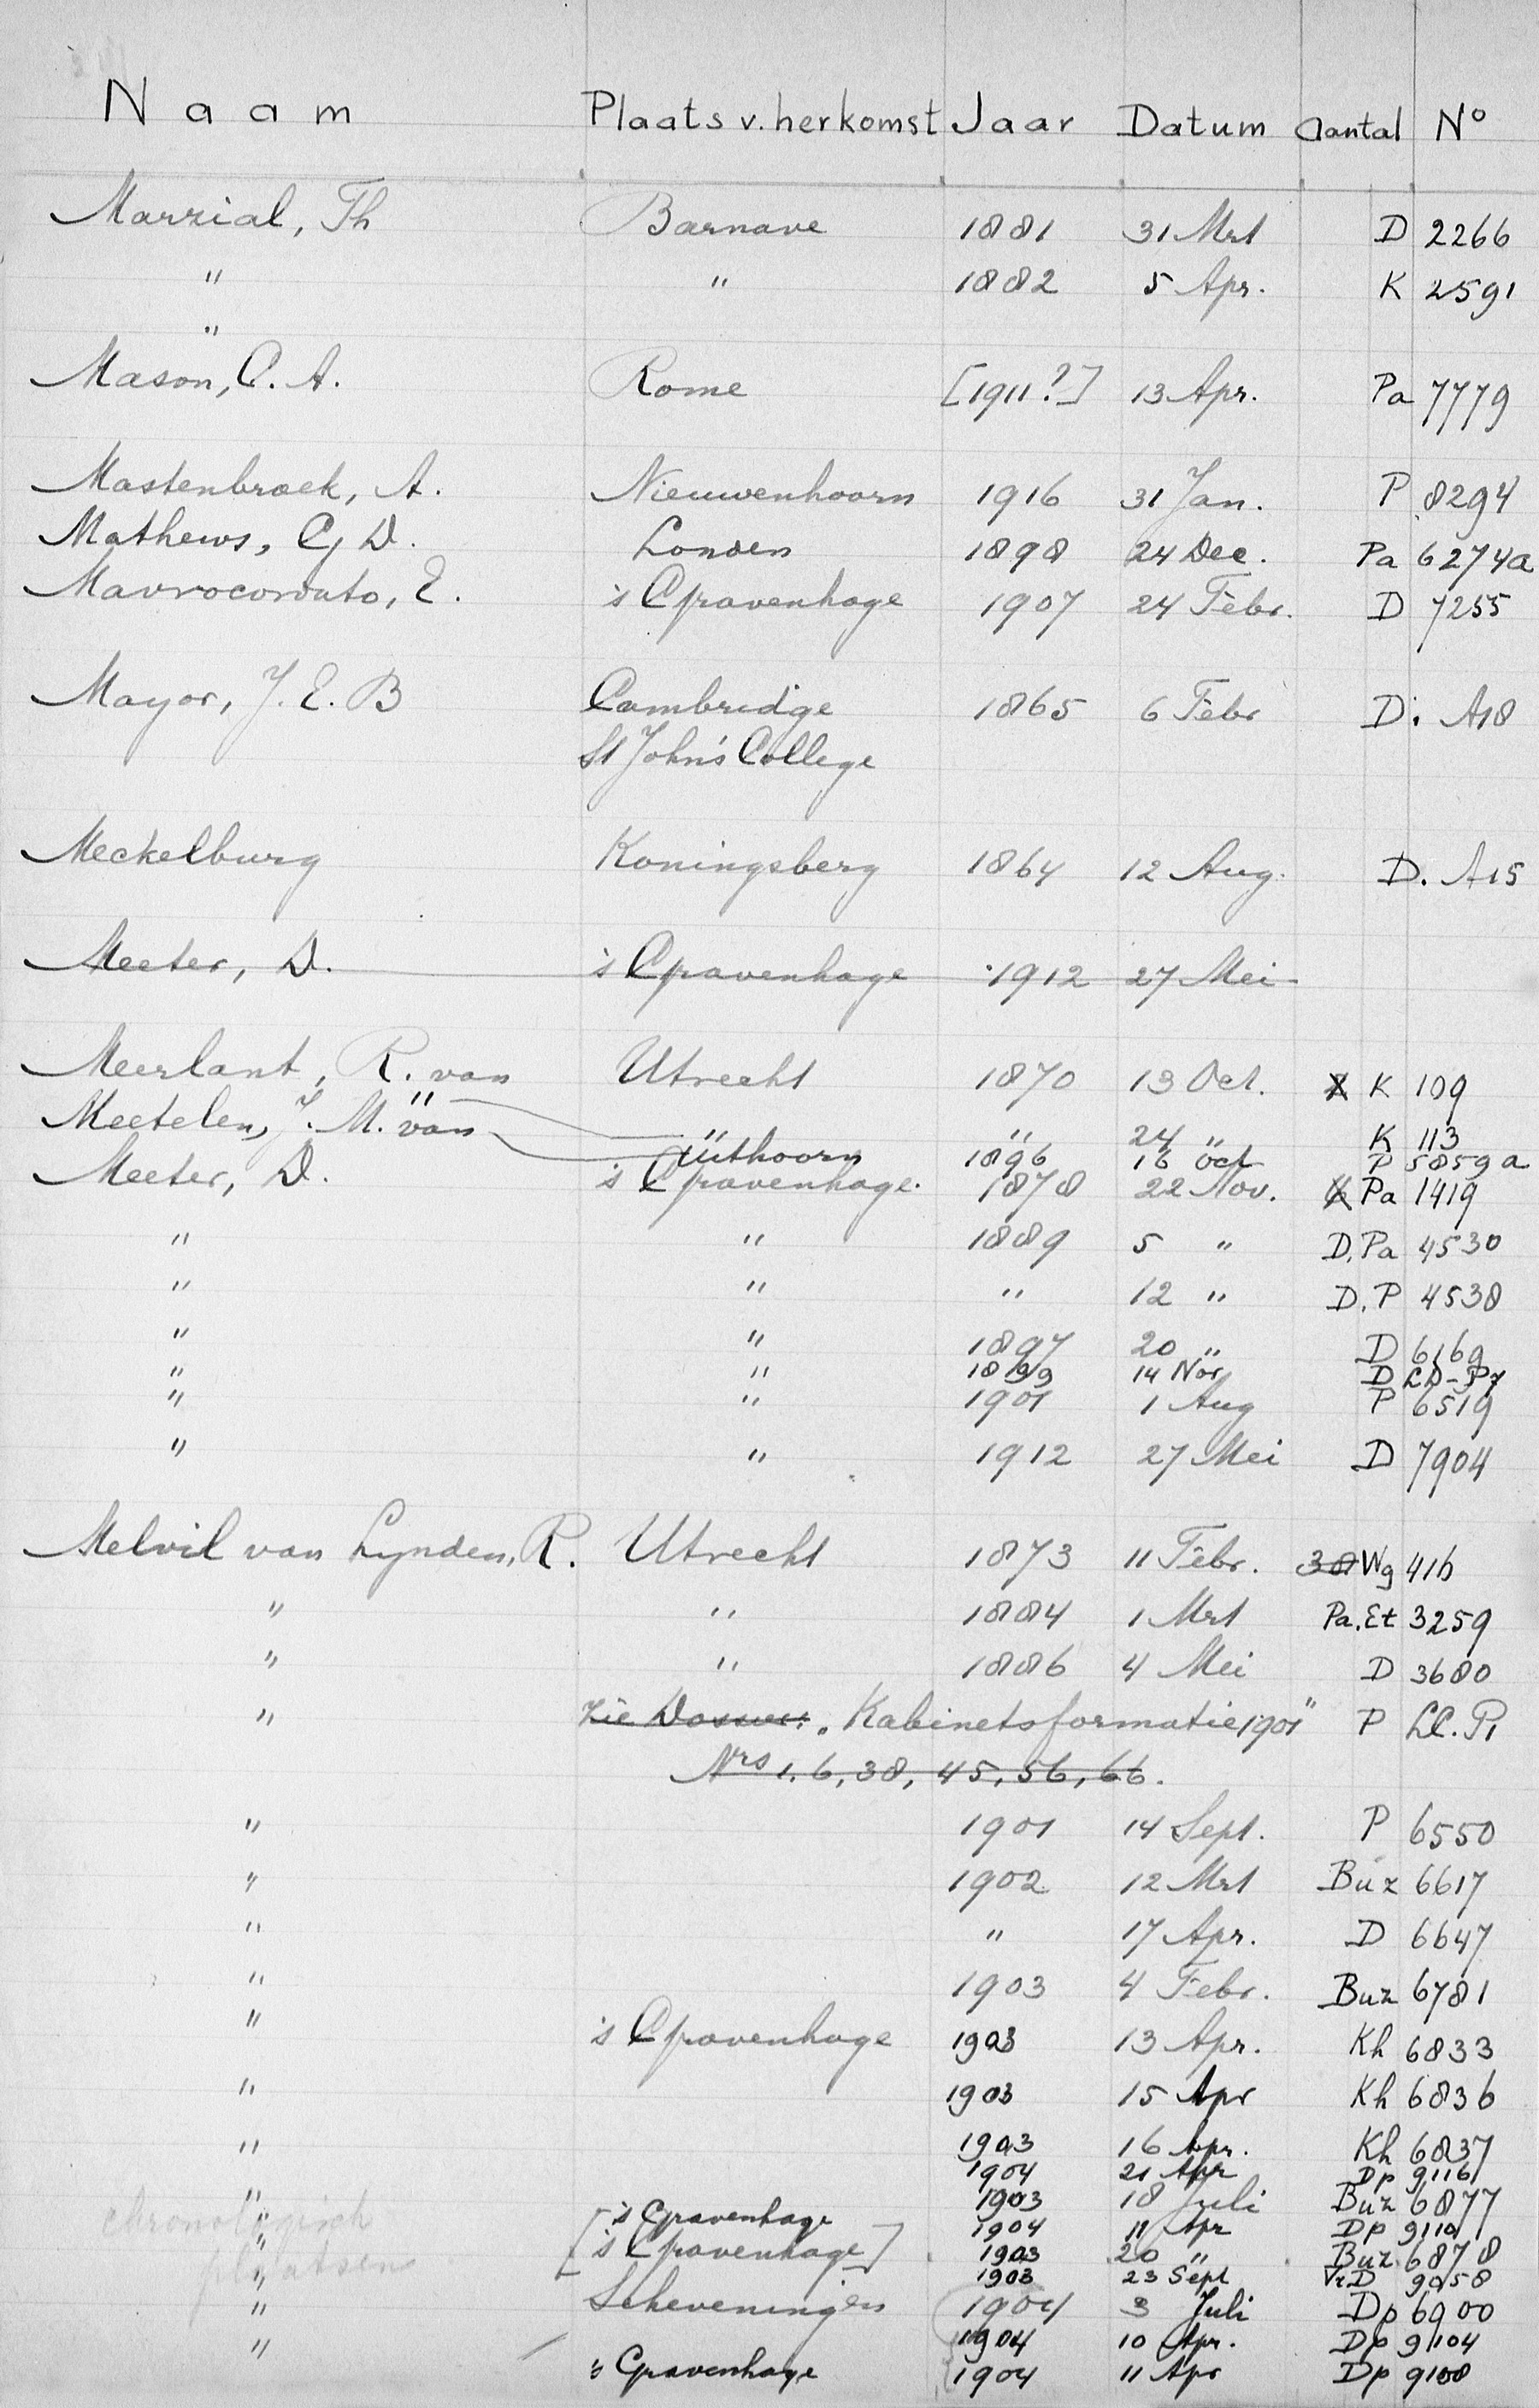 Naam Plaats v. herkomst Jaar Datum Aantal No
Marzial, Th Barnave 1881 31 Mrt D 2266
" " 1882 5 Apr. K 2591
"
Mason, C. A. Rome [1911?] 13 Apr. Pa 7779
Mastenbroek, A. Nieuwenhoorn 1916 31 Jan. P 8294
Mathews, Ch D. Londen 1898 24 Dec. Pa 6274a
Mavrocordato, E. 's Gravenhage 1907 24 Febr. D 7255
Mayor, J. E. B Cambridge 1865 6 Febr D. A18
St John's College
Meckelburg Koningsberg 1864 12 Aug. D. A15
Meeter, D. 's Gravenhage 1912 27 Mei
Meerlant, R. van Utrecht 1870 13 Oct. K 109
" " " 24 " K 113
Meetelen, J. M. van Uithoorn 1896 16 Oct P 5859a
Meeter, D. 's Gravenhage 1878 22 Nov. Pa 1419
" " 1889 5 " D. Pa 4530
" " " 12 " D. P 4538
" " 1897 20 " D 6169
" " 1899 14 Nov D LD-P7
" " 1901 1 Aug P 6519
" " 1912 27 Mei D 7904
Melvil van Lynden, R. Utrecht 1873 11 Febr. 38 Wg 416
" " 1884 1 Mrt Pa. Et 3259
" " 1886 4 Mei D 3680
" Zie Dossier: "Kabinetsformatie 1901" P LC. P1
Nrs 1, 6, 38, 45, 56, 66.
" 1901 14 Sept. P 6550
" 1902 12 Mrt Buz 6617
" " 17 Apr. D 6647
" 1903 4 Febr. Buz 6781
" 's Gravenhage 1903 13 Apr. Kh 6833
" 1903 15 Apr Kh 6836
" 1903 16 Apr. Kh 6837
1904 21 Apr Dp 9116
" 1903 18 Juli Buz 6877
chronologisch " 's Gravenhage 1904 11 Apr Dp 9110
" ['s Gravenhage] 1903 20 " Buz 6878
plaatsen " 1903 23 Sept VrD 9058
" Scheveningen 1904 3 Juli Dp 6900
" 1904 10 Apr. Dp 9104
's Gravenhage 1904 11 Apr Dp 9108